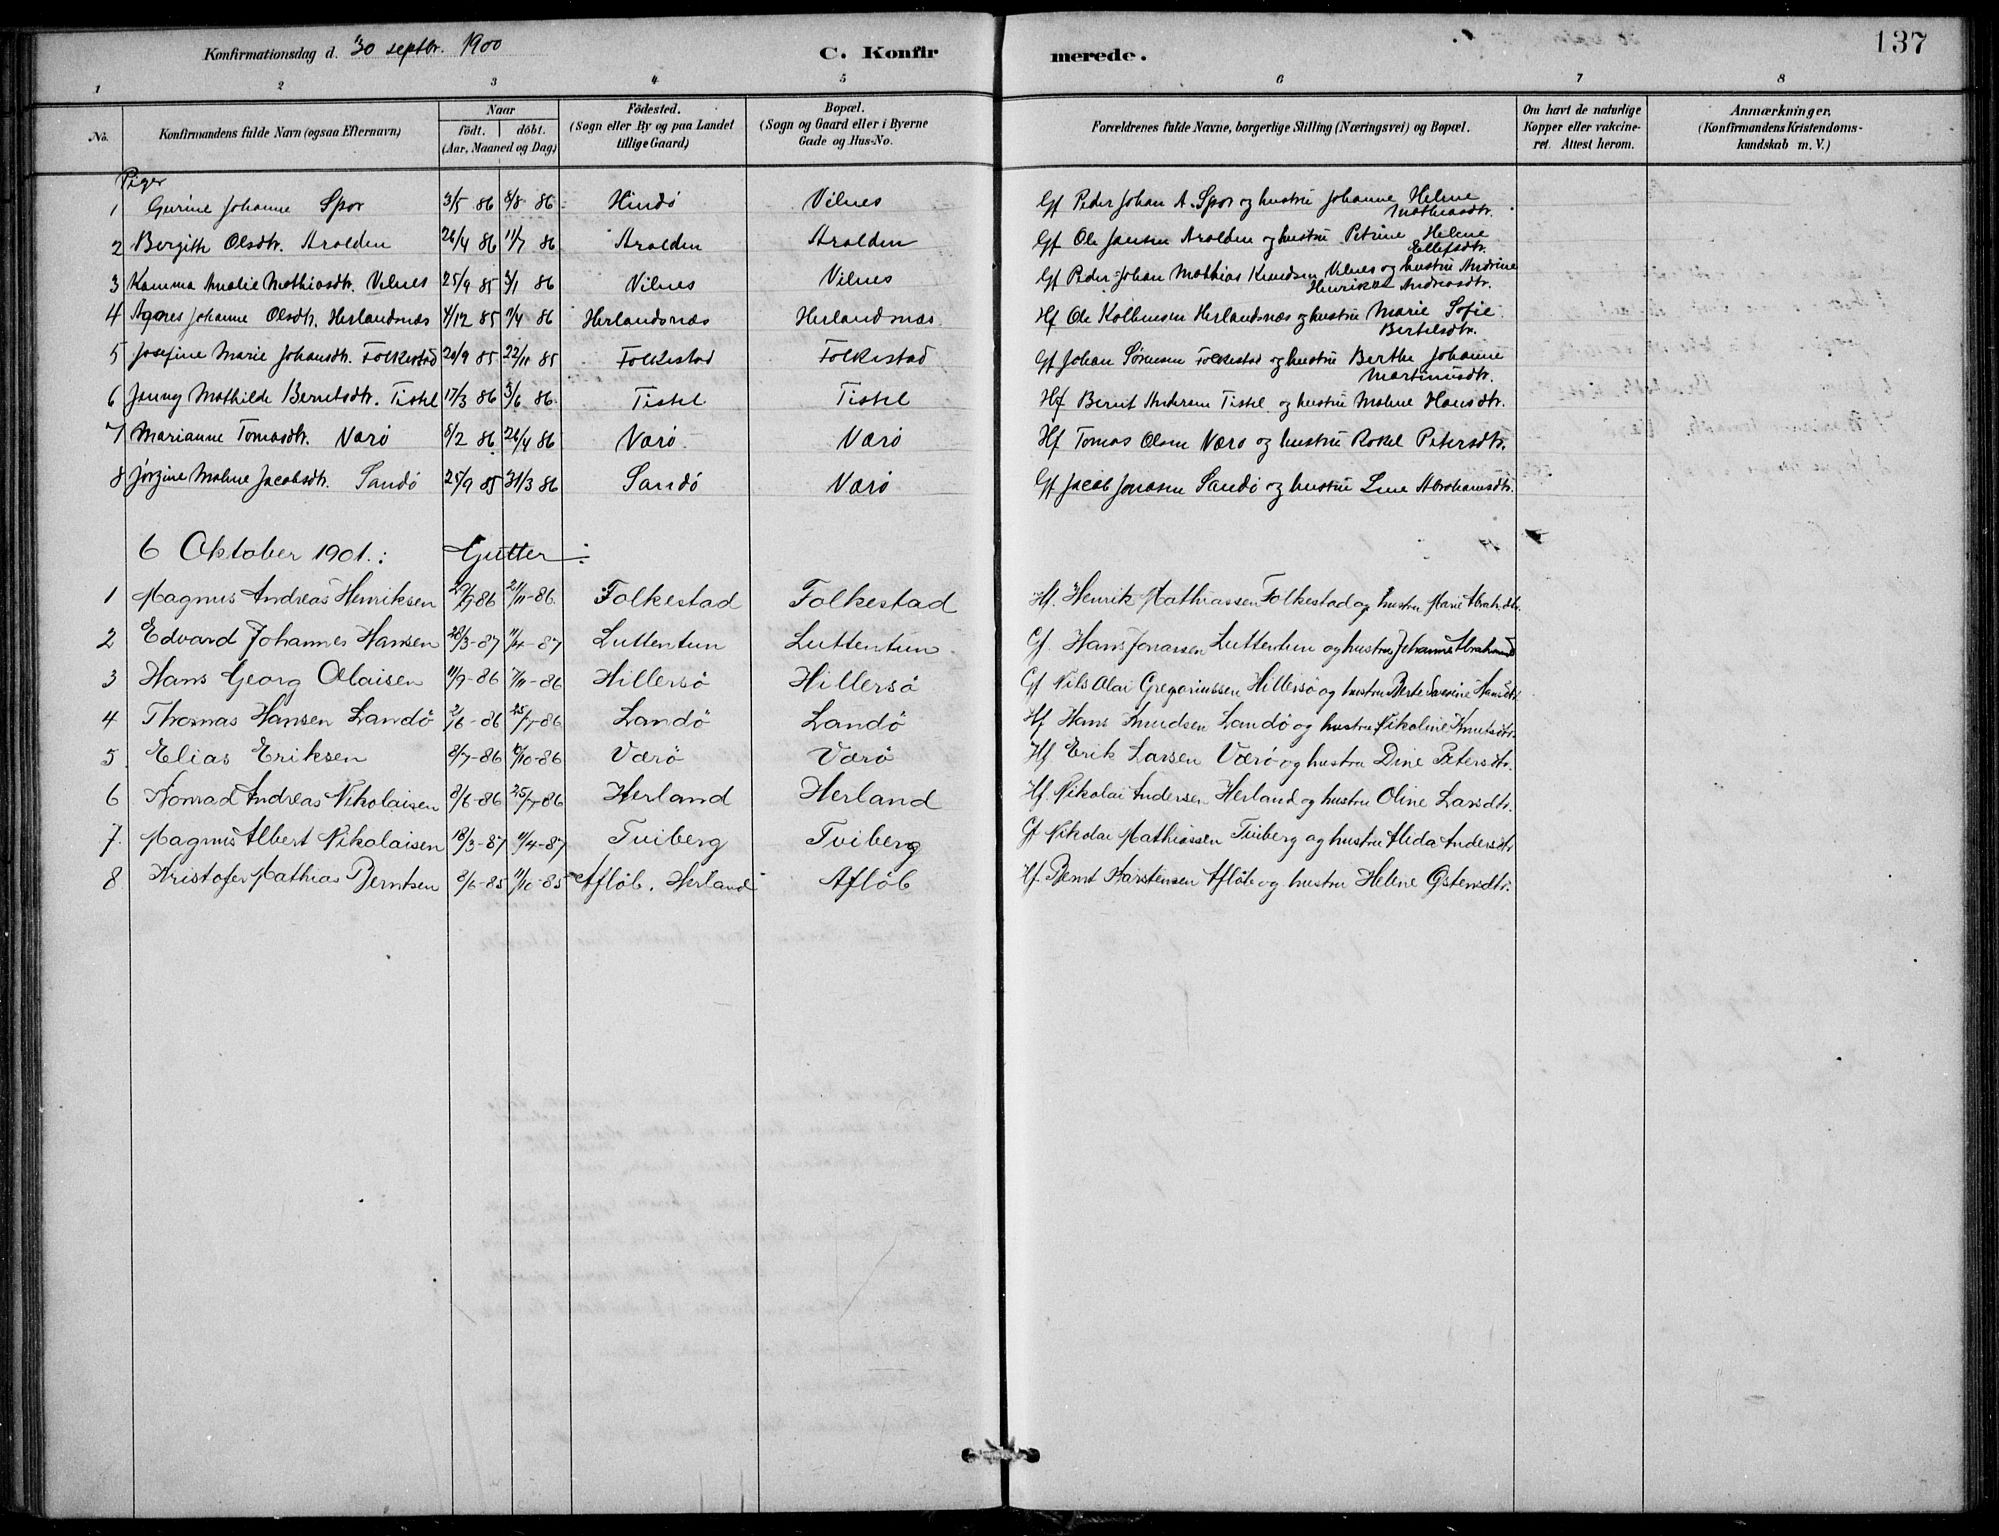 Konfirmationsdag d. 30 septbr. 1900 C. Konfirmerede. 137
1 2 3 4 5 6 7 8
No. Konfirmandens fulde Navn (ogsaa Efternavn) Naar födt. döbt. (Aar, Maaned og Dag) Födested. (Sogn eller By og paa Landet tillige Gaard) Bopæl. (Sogn og Gaard eller i Byerne Gade og Hus-No. Forældrenes fulde Navne, borgerlige Stilling (Næringsvei) og Bopæl. Om havt de naturlige Kopper eller vakcineret. Attest herom. Anmærkninger, (Konfirmandens Kristendomskundskab m. V.)
Piger
1 Gurine Johanne Spor 3/5 86 8/8 86 Hindö Vilnes Gf Peder Johan A. Spor og hustru Johanne Helene Mathiasdtr.
2 Bergith Olsdtr. Aralden 26/4 86 11/7 86 Aralden Aralden Gf Ole Jansen Aralden og hustru Petrine Helene Ellefsdtr.
3 Kamma Amalie Mathiasdtr. Vilnes 25/9 85 3/1 86 Vilnes Vilnes Gf Peder Johan Mathias Knudsen Vilnes og hustru Andrine Henrikke Andreasdtr.
4 Agnes Johanne Olsdtr. Herlandsnæs 4/12 85 1/4 86 Herlandsnæs Herlandsnæs Hf Ole Kolbensen Herlandsnæs og hustru Marie Sofie Bertelsdtr.
5 Josefine Marie Johansdtr. Folkestad 20/9 85 22/11 85 Folkestad Folkestad Gf Johan Sörensen Folkestad og hustru Berthe Johanne Martinusdtr.
6 Jenny Mathilde Berntsdtr. Tistel 17/3 86 3/6 86 Tistel Tistel Hf Bernt Andersen Tistel og hustru Malene Hansdtr.
7 Marianne Tomasdtr. Værö 8/2 86 26/4 86 Værö Værö Hf Tomas Olsen Værö og hustru Rakel Petersdtr.
8 Jörgine Malene Jacobsdtr. Sandö 25/9 85 31/3 86 Sandö Værö Gf Jacob Jonasen Sandö og hustru Lene Abrahamsdtr.
6 Oktober 1901.: Gutter
1 Magnus Andreas Henriksen 86 21/11-86 Folkestad Folkestad Hf. Henrik Mathiassen Folkestad og hustru Marie Abrahdtr.
2 Edvard Johannes Hansen 28/3-87 11/4-87 Luttentun Luttentun Gf. Hans Jonassen Luttentun og hustru Johanne
3 Hans Georg Olaisen 11/9-86 7/11-86 Hillersö Hillersö Gf Nils Olai Gregoriussen Hillersö og hustru Berte Severine Hansdtr.
4 Thomas Hansen Landö 2/6-86 25/7-86 Landö Landö Hf Hans Knudsen Landö og hustru Nikoline Knutsdtr.
5. Elias Eriksen 8/7-86 10/10-86 Værö Værö Hf. Erik Larsen Værö og hustru Dine Petersdtr.
6 Konrad Andreas Nikolaisen 8/6-86 25/7-86 Herland Herland Hf. Nikolai Andersen Herland og hustru Oline Larsdtr.
7. Magnus Albert Nikolaisen 18/3-87 11/4-87 Tviberg Tviberg Gf Nikolai Mathiassen Tviberg og hustru Alida Andersdtr
8 Kristofer Mathias Berntsen 8/6-85 11/10-85 Aflöb. Herland Aflöb Hf. Bernt Karstensen Aflöb og hustru Helene Östensdtr.